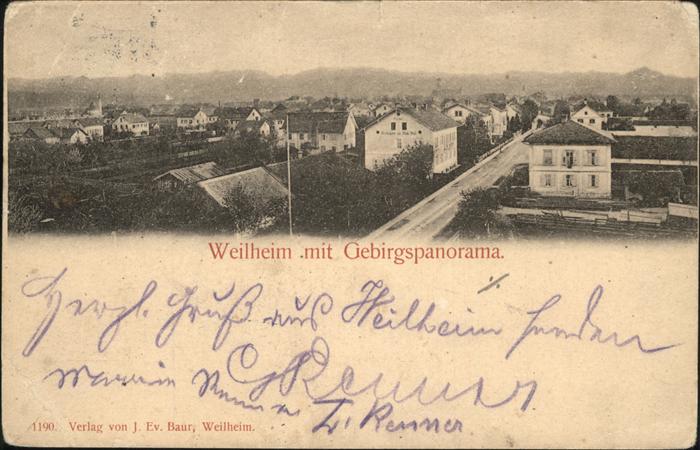 Weilheim mit Gebirgspanorama.
Herzl. Gruß aus Weilheim senden
Renner
L. Renner
1190. Verlag von J. Ev. Baur, Weilheim.